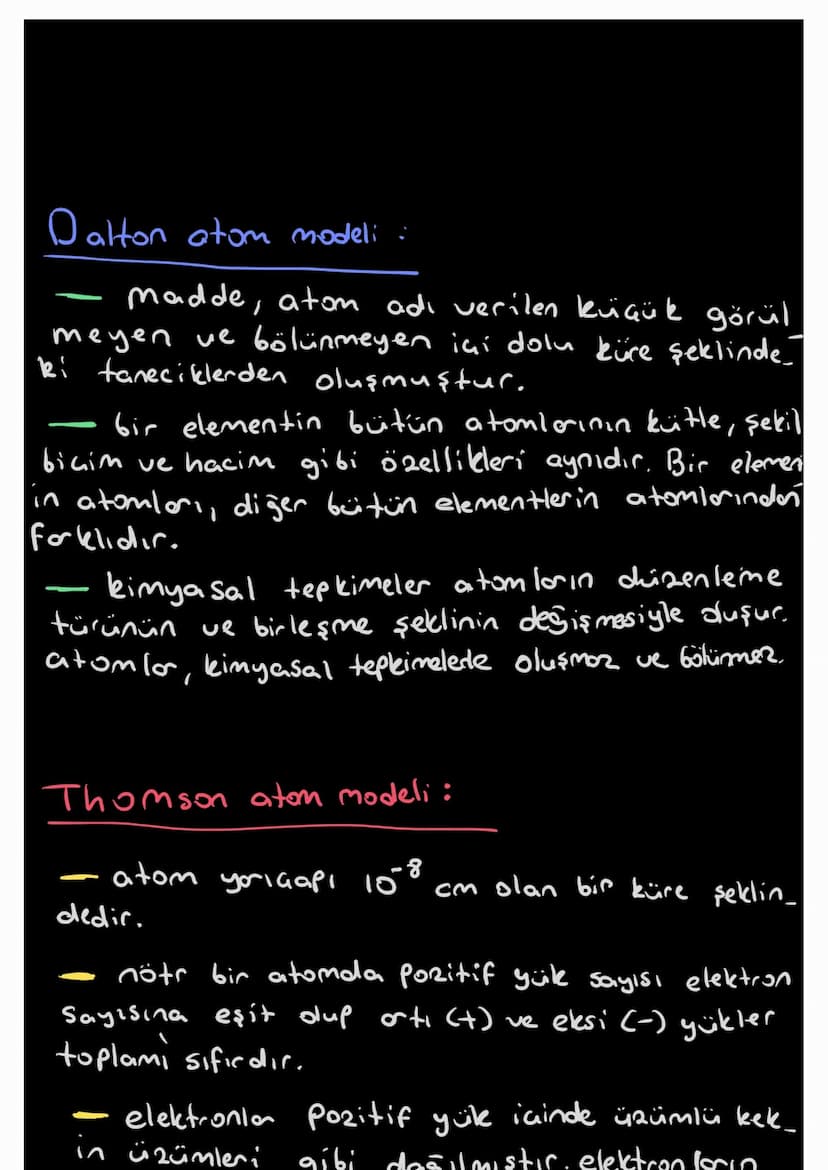 Dalton atom modeli :
— madde, atom adı verilen küçük görül
meyen ve bölünmeyen içi dolu küre şeklinde_
ki taneciklerden oluşmuştur.
— bir elementin bütün atomlarının kütle, şekil
biçim ve hacim gibi özellikleri aynıdır. Bir elemen
in atomları, diğer bütün elementlerin atomlarından
farklıdır.
— kimyasal tepkimeler atomların düzenleme
türünün ve birleşme şeklinin değişmesiyle oluşur.
atomlar, kimyasal tepkimelerde oluşmaz ve bölünmez.
Thomson atom modeli :
— atom yarıçapı 10⁻⁸ cm olan bir küre şeklin_
dedir.
— nötr bir atomda pozitif yük sayısı elektron
sayısına eşit olup artı (+) ve eksi (-) yükler
toplamı sıfırdır.
— elektronlar pozitif yük içinde üzümlü kek_
in üzümleri gibi dağılmıştır. elektronların